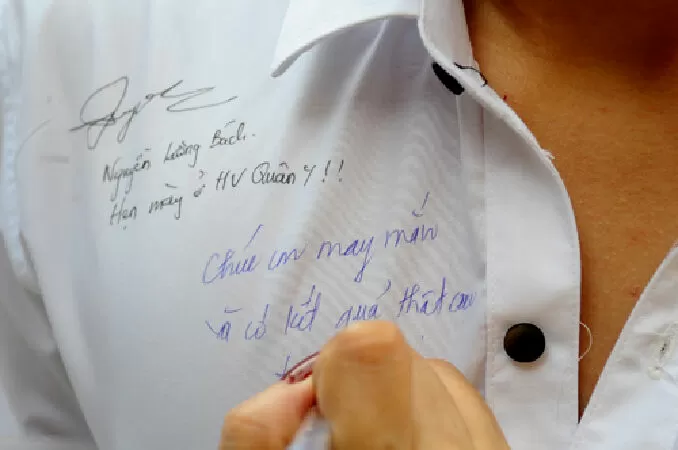 Nguyễn Lương Bách.
Hẹn mày ở HV Quân Y!!
Chúc em may mắn
và có kết quả thật cao